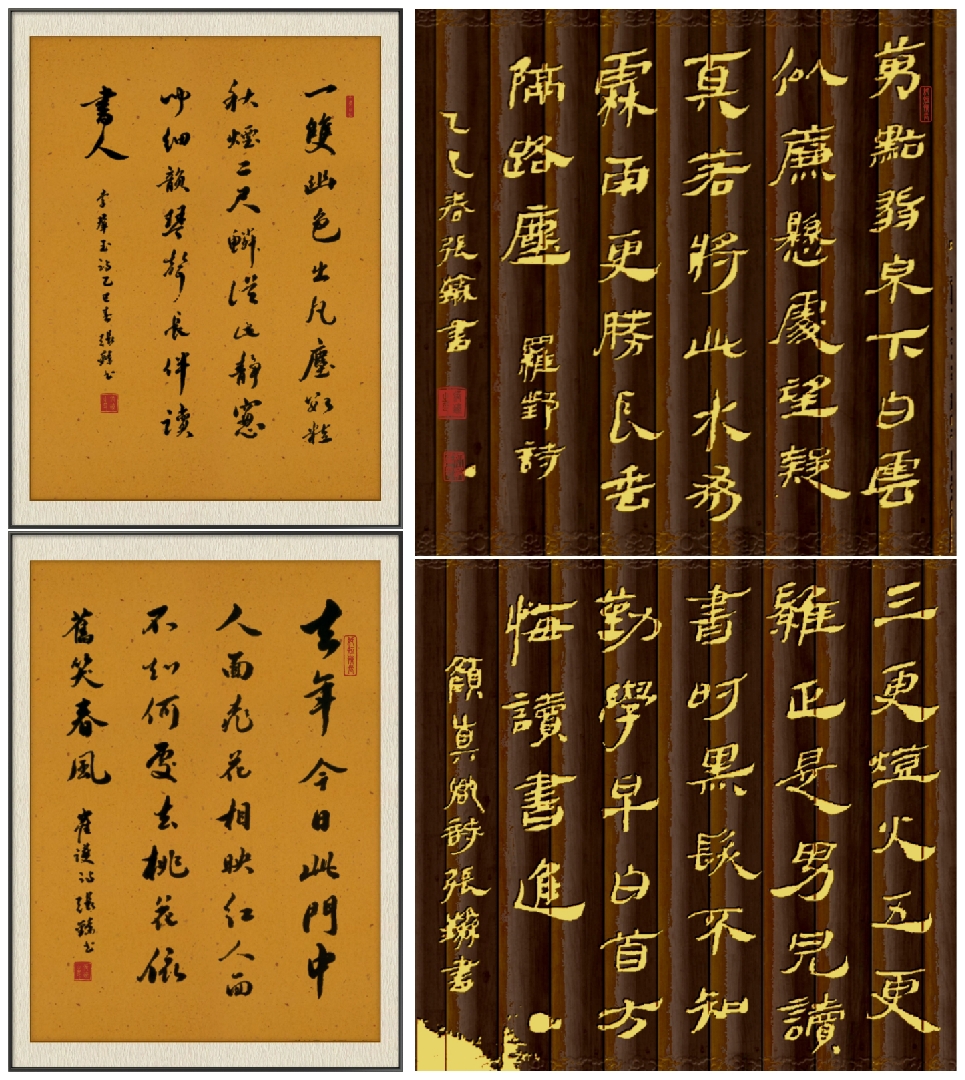 一雙幽色出凡塵數粒
秋煙二尺鱗從此靜窓
闻细韻琴聲長伴讀
書人
李群玉诗乙巳春張书
萬點飛泉下白雲
似簾懸處望疑
真若將此水為
霖雨更勝長垂
隔路塵 羅鄴詩
乙巳春張書
去年今日此門中
人面桃花相映红人面
不知何處去桃花依
舊笑春風
崔護诗張书
三更燈火五更
雞正是男兒讀
書时黑髮不知
勤學早白首方
悔讀書遲
顏真卿詩張書